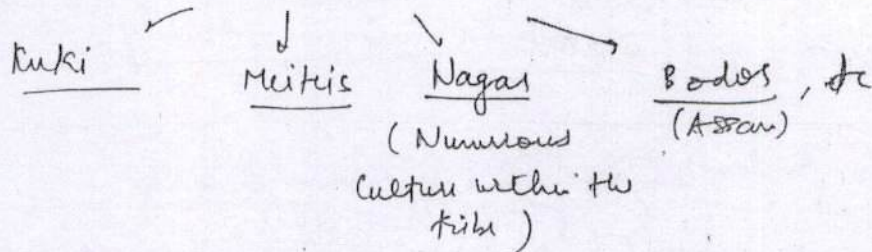 Kuki Meiteis Nagas Bodos, etc
(Numerous (Assam)
Culture within the
tribe)